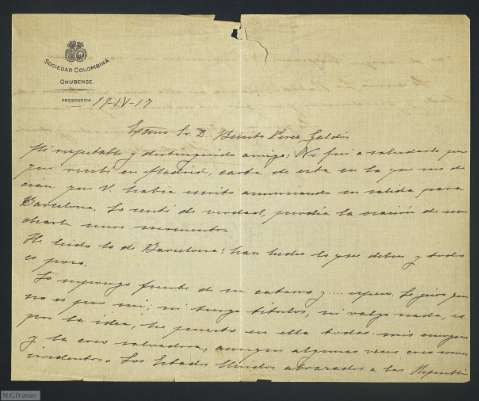 SOCIEDAD COLOMBINA
ONUBENSE
PRESIDENCIA
17-IV-17
Sr. D. Benito Pérez Galdós
Mi respetable y distinguido amigo: No fui a saludarle por
que recibí en Madrid, carta de esta en la que me de
cían que V. había escrito anunciando su salida para
Barcelona. Lo sentí de verdad, perdía la ocasión de
charla unos momentos.
He leído lo de Barcelona; han hecho lo que deben y todo
es poco.
Lo supongo fuerte de su catarro y ...
no es para mi; ni tengo títulos, ni valgo nada, es
por la idea, he puesto en ella todas mis energías
y la creo salvadora, aunque algunas veces
Los Estados Unidos abrazados a las Repúbli